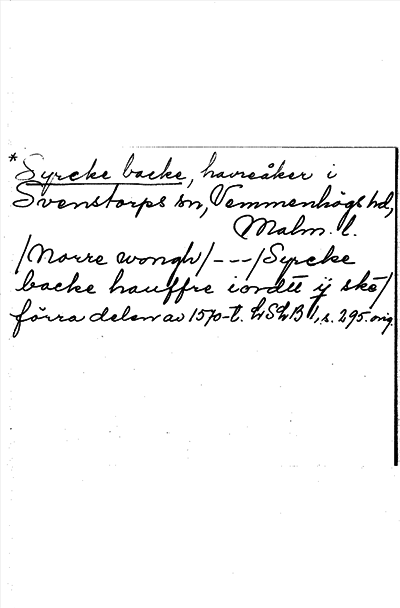 *Syrcke backe, havreåker i
Svenstorps sn, Vemmenhögs hd,
Malm. l.
/Norre wongh/---/Syrcke
backe hauffre iordtt ij skċ/
förra delen av 1570-t. LSLB 1, s. 295. orig.